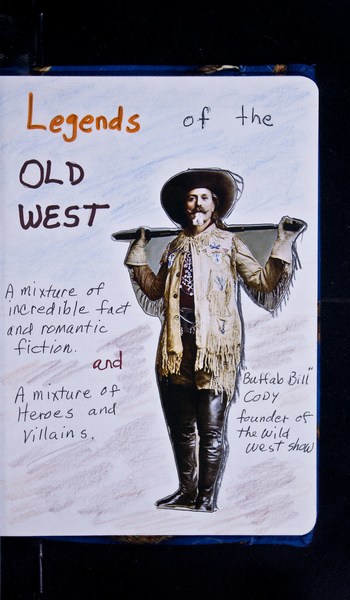 Legends of the
OLD
WEST
A mixture of
incredible fact
and romantic
fiction.
and
A mixture of
Heroes and
Villains.
"Buffalo Bill"
CODY
founder of
the Wild
West show